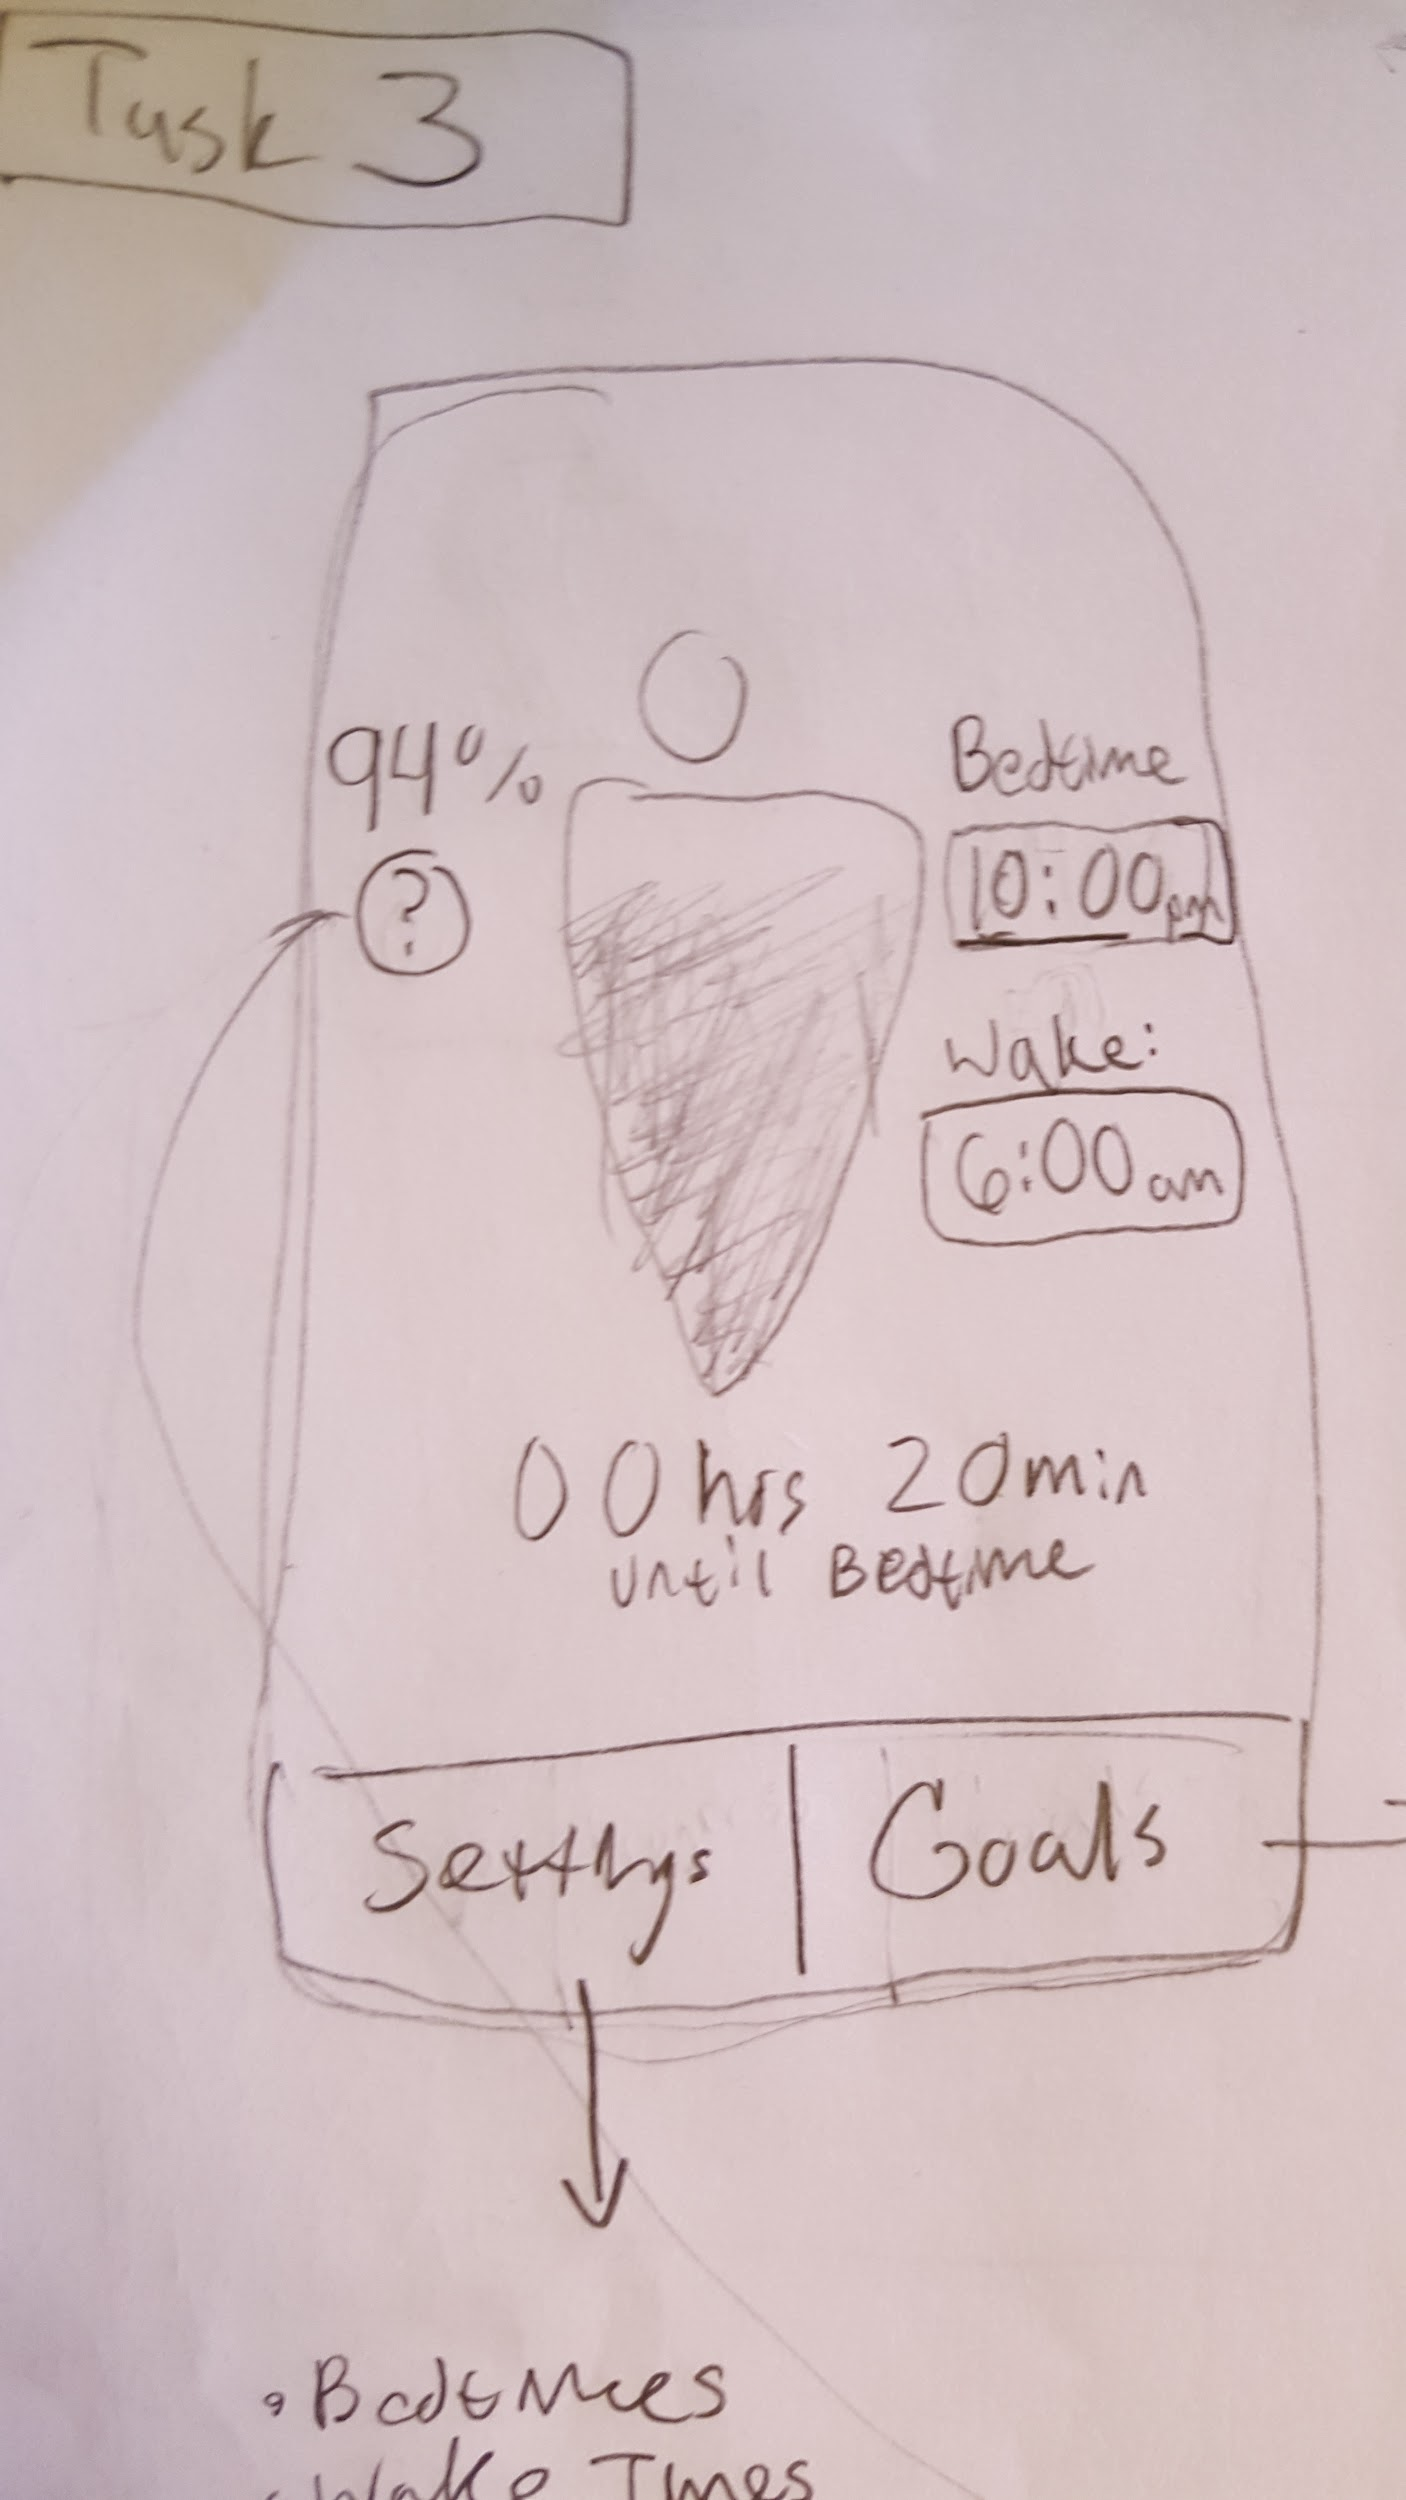 Task 3
94%
?
Bedtime
10:00pm
Wake:
6:00am
00 hrs 20min
until Bedtime
Settings
Goals
• Bedtimes
• Wake Times